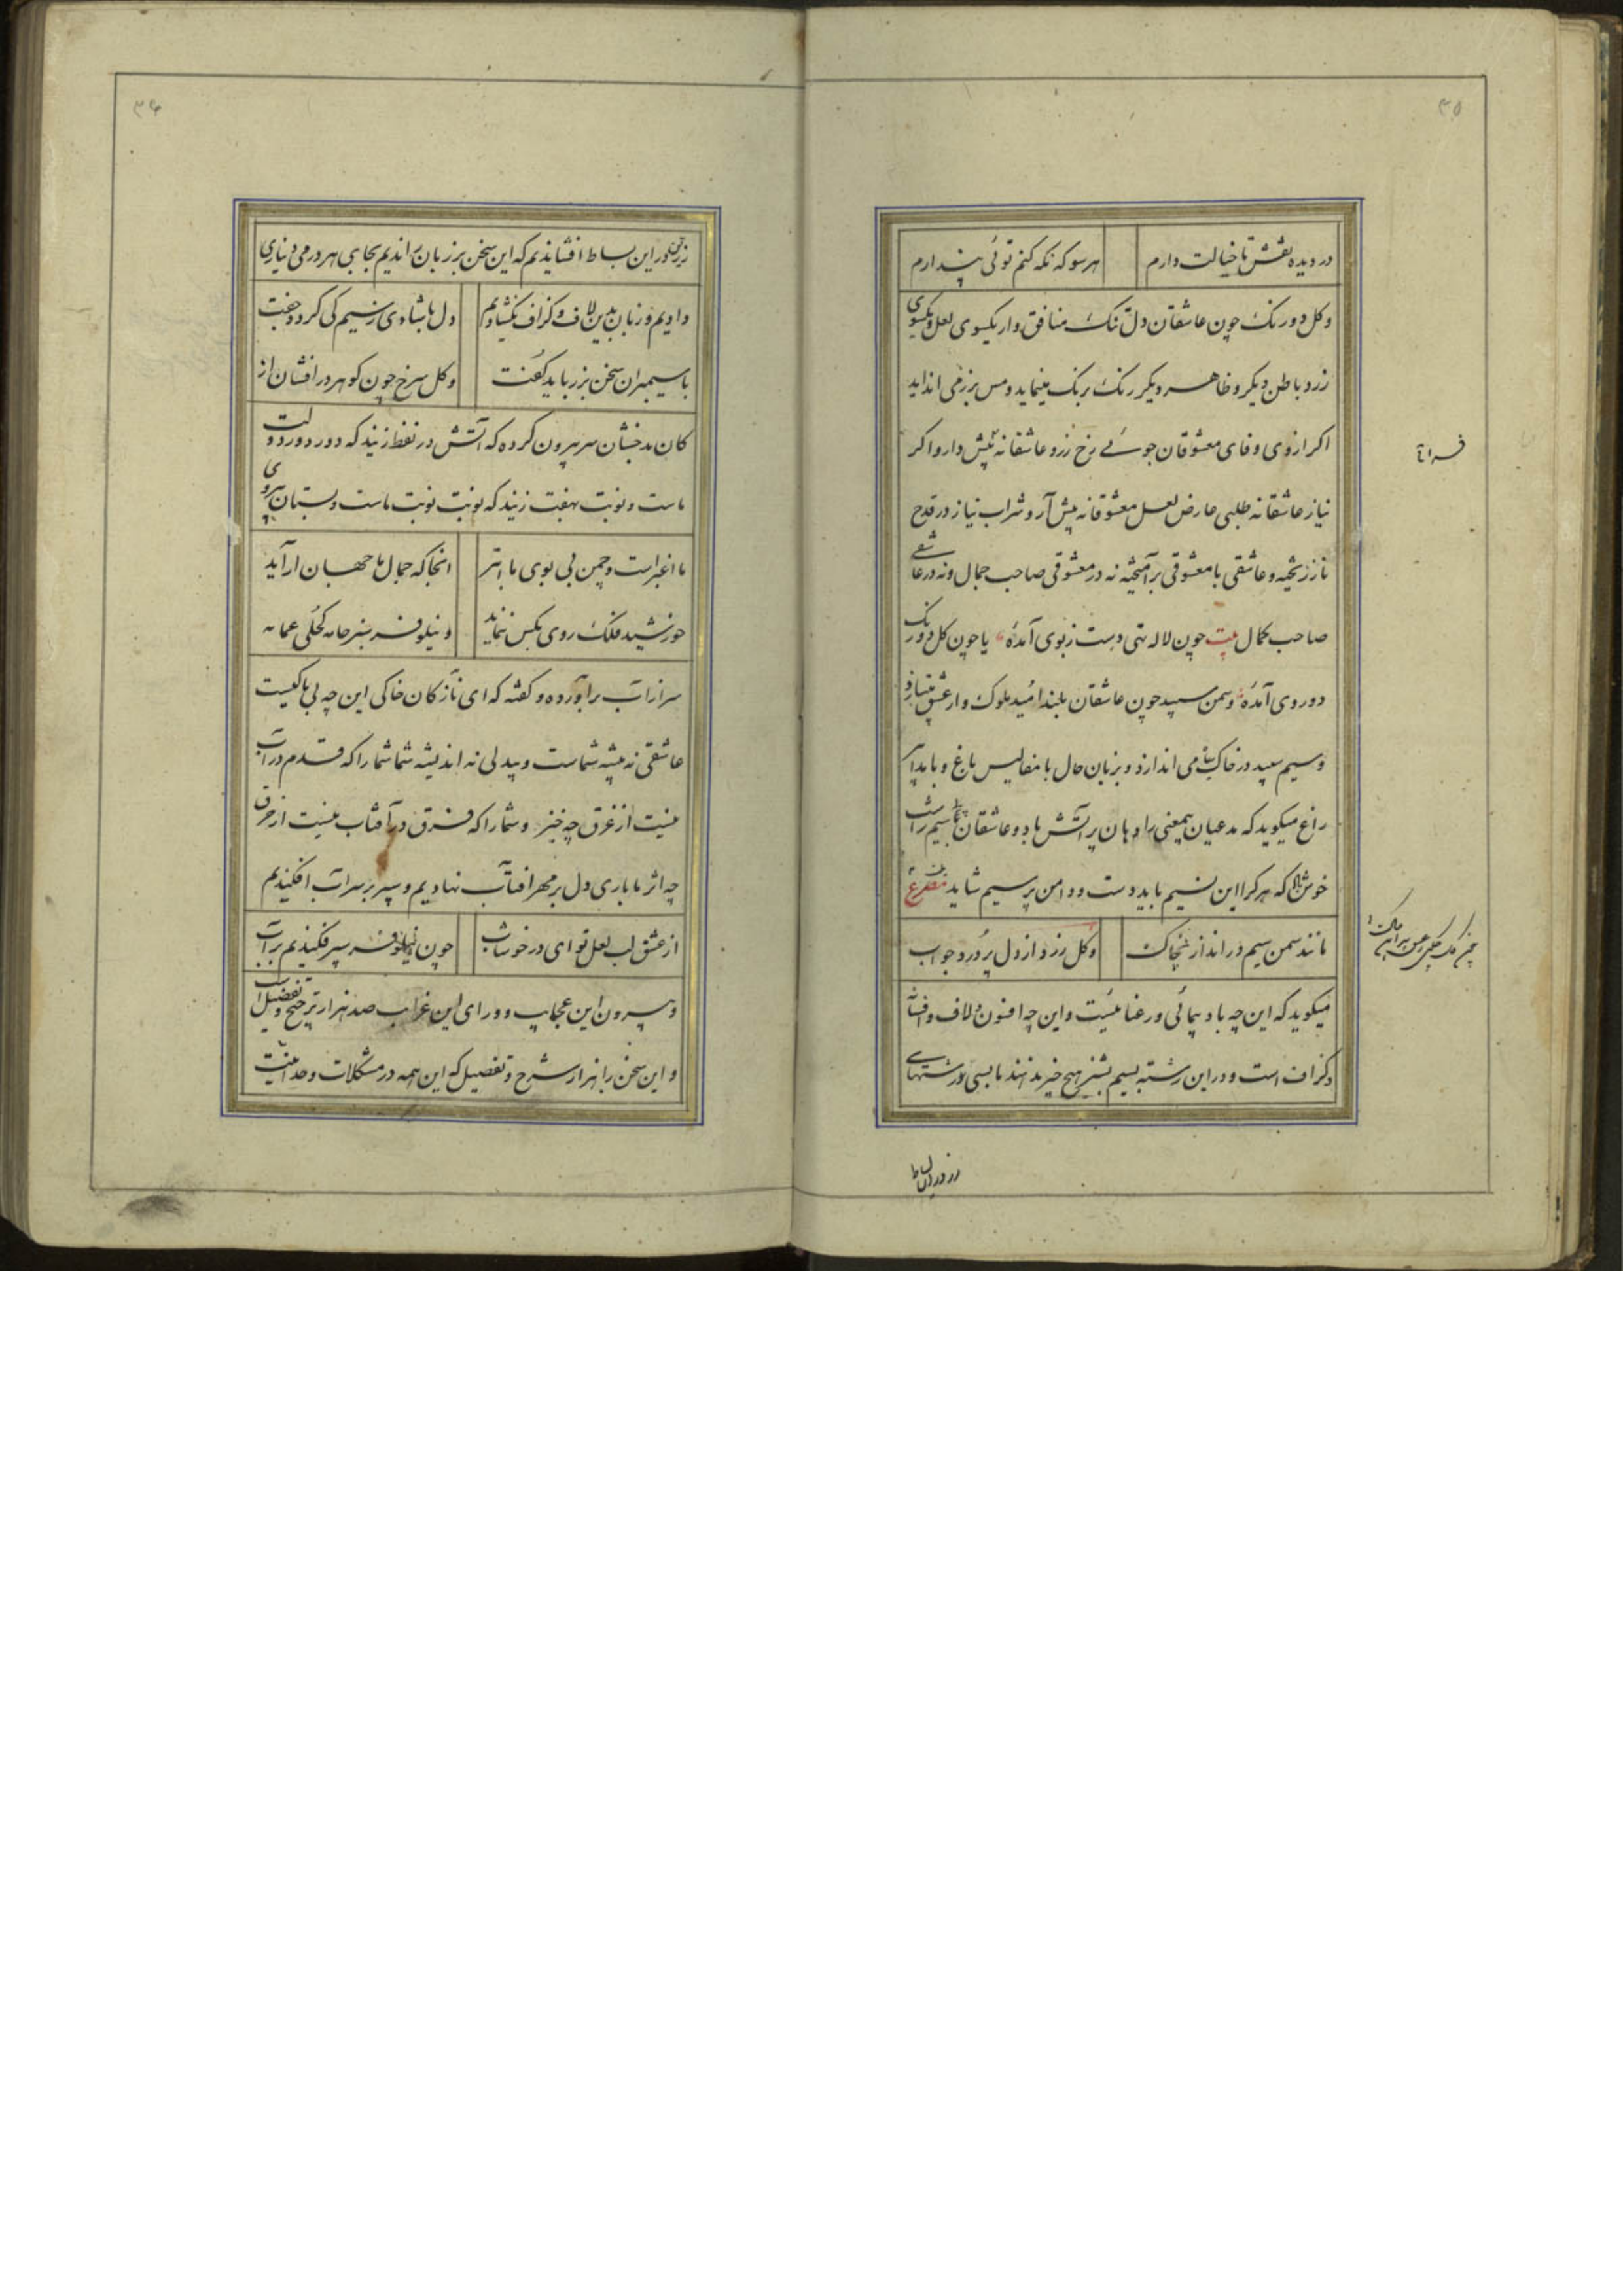 ۳۵
در دیده نقش تا خیالت دارم هر سو که نکه کنم توئی پندارم
وکل دورنک چون عاشقان دل تنک منافق وار یکسوی لعل ویکسوی
زرد باطن دیکر و ظاهر دیکر رنک برنک مینماید و مس بزر می انداید
اکر از وی وفای معشوقان جوئی رخ زرد عاشقانه پیش دارد و اکر
نیاز عاشقانه طلبی عارض لعل معشوقانه پیش آرد و شراب نیاز در قدح
ناز ریخته و عاشقی با معشوقی برآمیخته نه در معشوقی صاحب جمال و نه در عاشقی
صاحب کمال بیت چون لاله تهی دست زبوی آمدهٔ یا چون کل دورنک
دو روی آمدهٔ وسمن سپید چون عاشقان بلند امید ملوک وار عشق میبازد
و سیم سپید در خاک می اندازد و بزبان حال با مفالیس باغ و با
راغ میکوید که مدعیان بیمعنی را دهان پر آتش باد و عاشقان
خوش که هر کرا این نسیم باید دست و دامن پر سیم شاید مصرع
مانند سمن سیم در انداز بخاک وکل زرد از دل پر درد جواب
میکوید که این چه باد پیمائی و رعنائیست و این چه افسون و لاف و افسانه
و کزاف است و در این رشته بسیم بشیز هیچ خبر ندهند ما بسی رشتهای
زر در این بساط
۳۶
زرین در این بساط افشاندیم که این سخن بر زبان راندیم بجای هر درمی دیناری
دادیم و زبان بدین لاف و کزاف نکشادیم دل با شادی ز سیم کی کردد جفت
با سیمبران سخن بزر باید کفت وکل سرخ چون کوهر در افشان از
کان بدخشان سر بیرون کرده که آتش در نفط زنید که دور دور دولت
ماست و نوبت بهفت زنید که نوبت نوبت ماست و بستان بی روی
ما اغبر است و چمن بی بوی ما ابتر انجا که جمال ما جهان آراید
خورشید فلک روی بکس ننماید و نیلوفر سبز جامه کحلی عمامه
سر از آب برآورده و کفته که ای نازکان خاکی این چه بی باکیست
عاشقی نه پیشه شماست و بیدلی نه اندیشه شما شما را که قدم در آب
نیست از غرق چه خبر و شما را که فرق در آفتاب نیست از حرق
چه اثر ما باری دل بر مهر افتاب نهادیم و سپر بر سر آب افکندیم
از عشق لب لعل تو ای در خوشاب چون نیلوفر سپر فکندیم بر آب
و بیرون این عجایب و ورای این غرایب صد هزار ترجیح و تفضیل است
و این سخن را هزار شرح و تفصیل که این همه در مشکلات وحدانیت